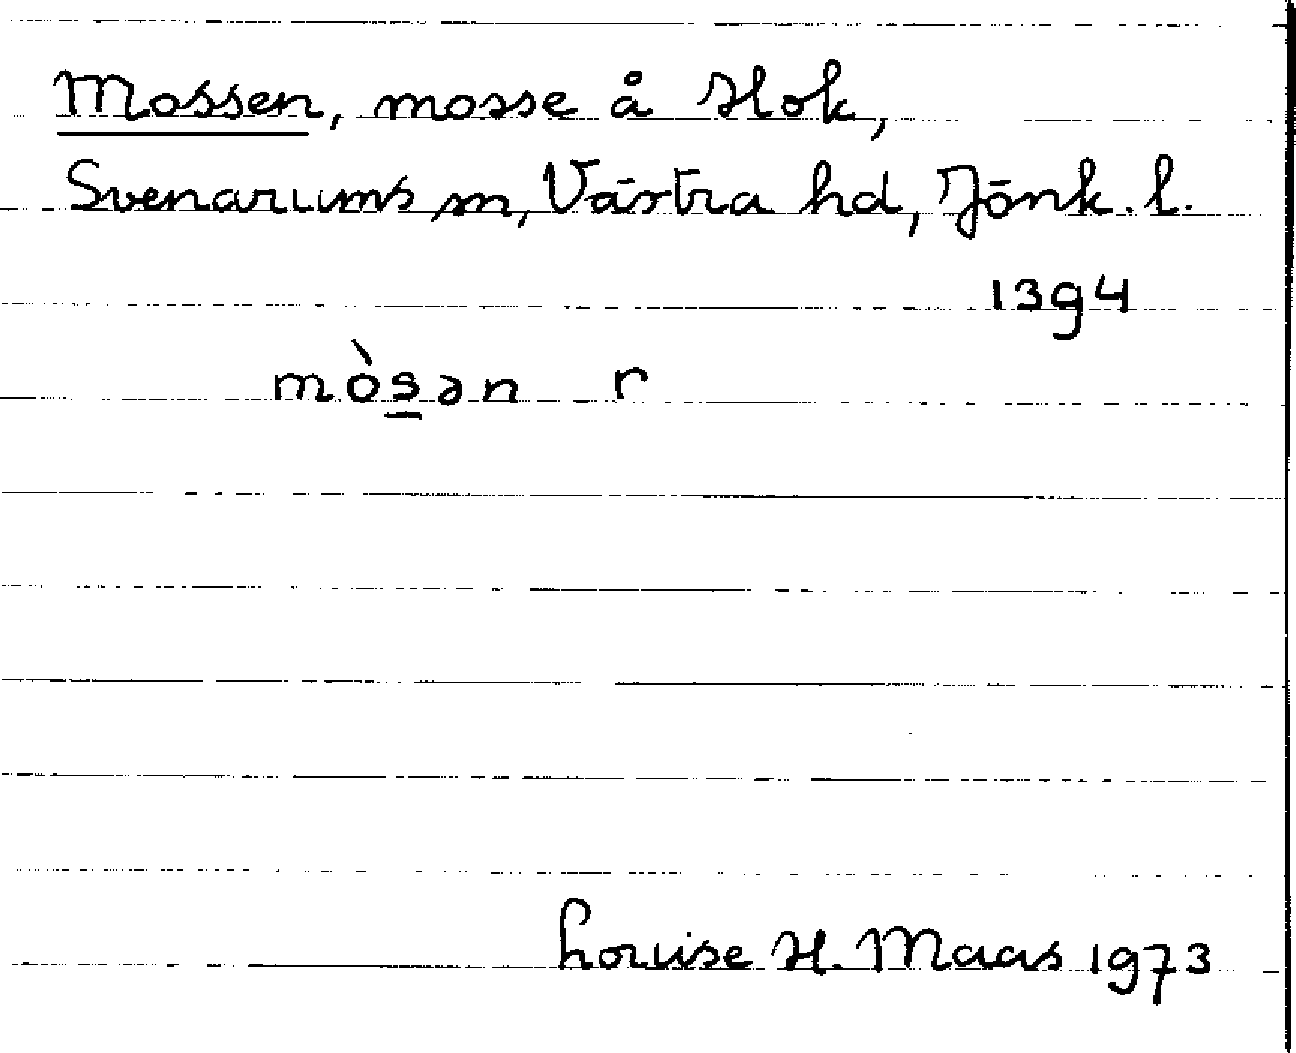 Mossen, mosse å Hok,
Svenarums sn, Västra hd, Jönk. l.
13g4
mòs̲ən r
Louise H. Maas 1973